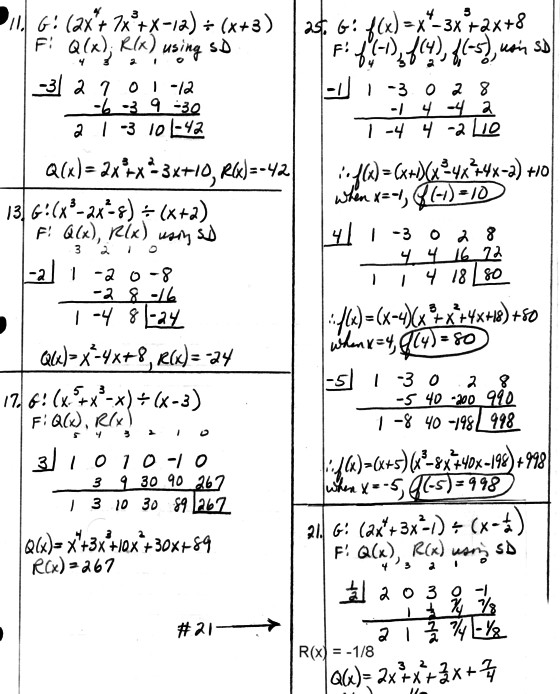 11. G: (2x⁴ + 7x³ + x - 12) ÷ (x+3)
F: Q(x), R(x) using SD
4 3 2 1 0
-3| 2 7 0 1 -12
-6 -3 9 -30
2 1 -3 10 |-42
Q(x) = 2x³ + x² - 3x + 10, R(x) = -42
13. G: (x³ - 2x² - 8) ÷ (x+2)
F: Q(x), R(x) using SD
3 2 1 0
-2| 1 -2 0 -8
-2 8 -16
1 -4 8 |-24
Q(x) = x² - 4x + 8, R(x) = -24
17. G: (x⁵ + x³ - x) ÷ (x - 3)
F: Q(x), R(x)
5 4 3 2 1 0
3| 1 0 1 0 -1 0
3 9 30 90 267
1 3 10 30 89 |267
Q(x) = x⁴ + 3x³ + 10x² + 30x + 89
R(x) = 267
#21 →
25. G: f(x) = x⁴ - 3x³ + 2x + 8
F: f(-1), f(4), f(-5), using SD
4 3 2 1 0
-1| 1 -3 0 2 8
-1 4 -4 2
1 -4 4 -2 |10
∴ f(x) = (x+1)(x³ - 4x² + 4x - 2) + 10
when x = -1, f(-1) = 10
4| 1 -3 0 2 8
4 4 16 72
1 1 4 18 |80
∴ f(x) = (x-4)(x³ + x² + 4x + 18) + 80
when x = 4, f(4) = 80
-5| 1 -3 0 2 8
-5 40 -200 990
1 -8 40 -198 |998
∴ f(x) = (x+5)(x³ - 8x² + 40x - 198) + 998
when x = -5, f(-5) = 998
21. G: (2x⁴ + 3x² - 1) ÷ (x - ½)
F: Q(x), R(x) using SD
4 3 2 1 0
½| 2 0 3 0 -1
1 ½ 7/4 7/8
2 1 7/2 7/4 |-1/8
R(x) = -1/8
Q(x) = 2x³ + x² + 7/2 x + 7/4